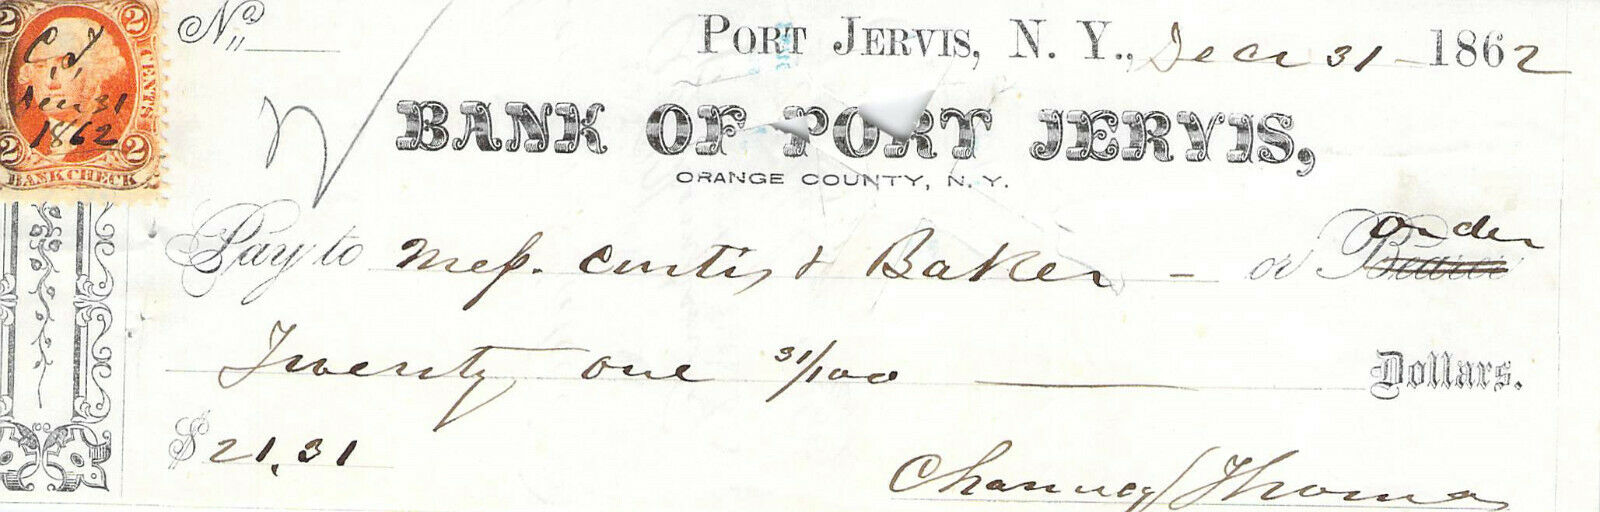 2 CENTS 2
C. T.
Dec 31
1862
2 2
BANK CHECK
No.
PORT JERVIS, N. Y., Decr 31 1862
BANK OF PORT JERVIS,
ORANGE COUNTY, N. Y.
Pay to Mess. Curtis & Baker - or Bearer order
Twenty one 31/100 Dollars.
$ 21.31
Chauncey Thomas